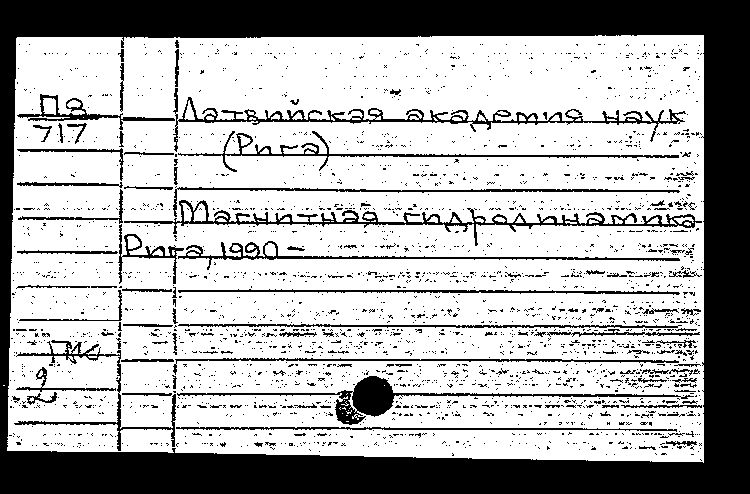 П8
717
Латвийская академия наук
(Рига)
Магнитная гидродинамика
Рига, 1990 –
2